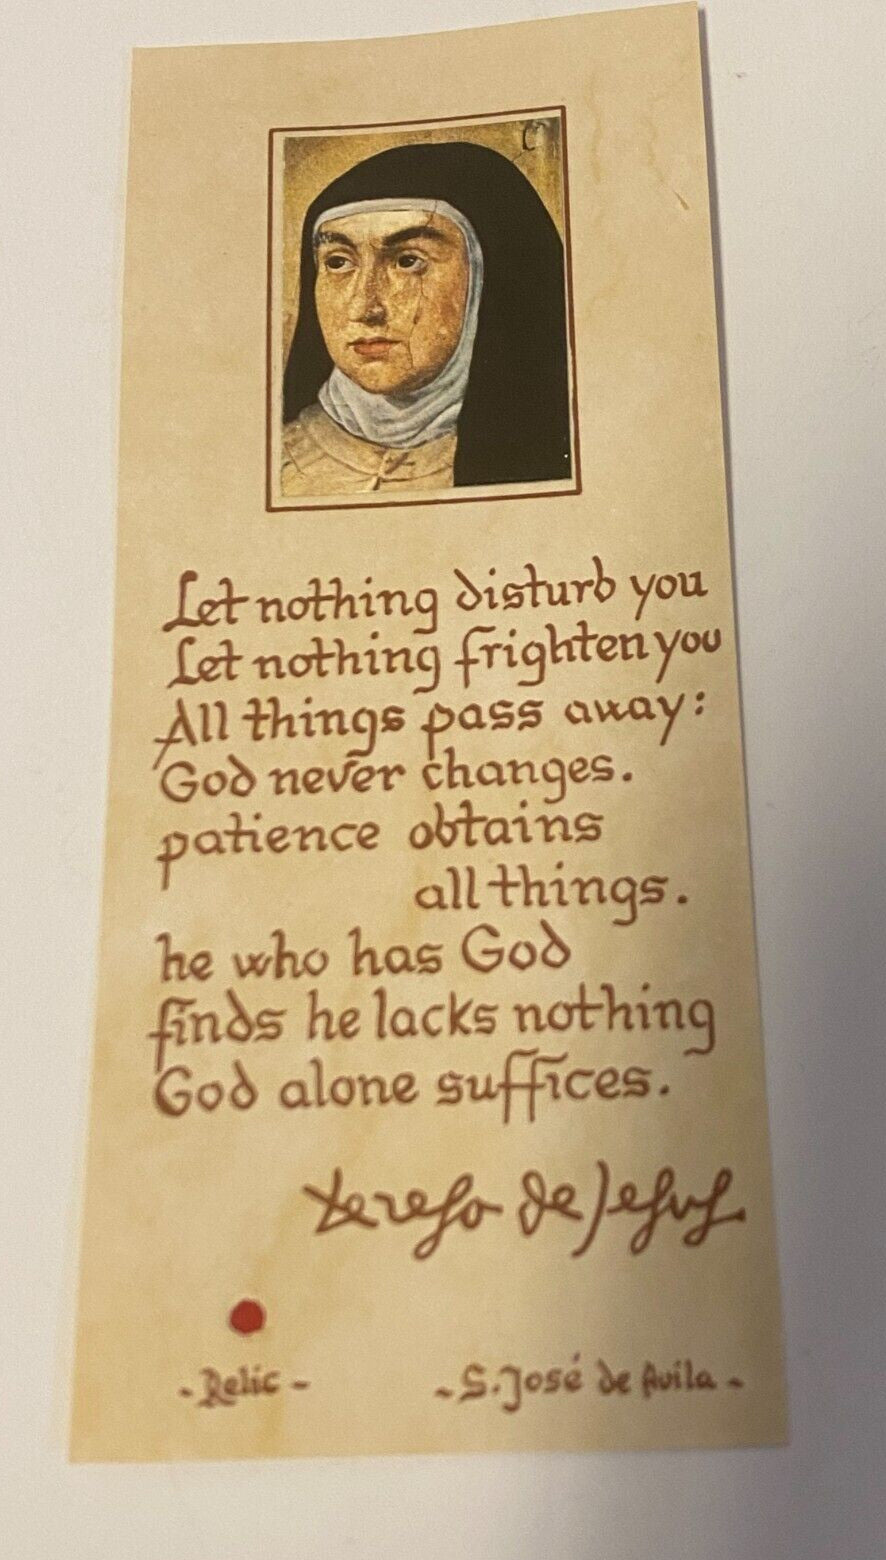 Let nothing disturb you
Let nothing frighten you
All things pass away:
God never changes.
patience obtains
all things.
he who has God
finds he lacks nothing
God alone suffices.
teresa de Jesus
- Relic -
- S. José de Avila -